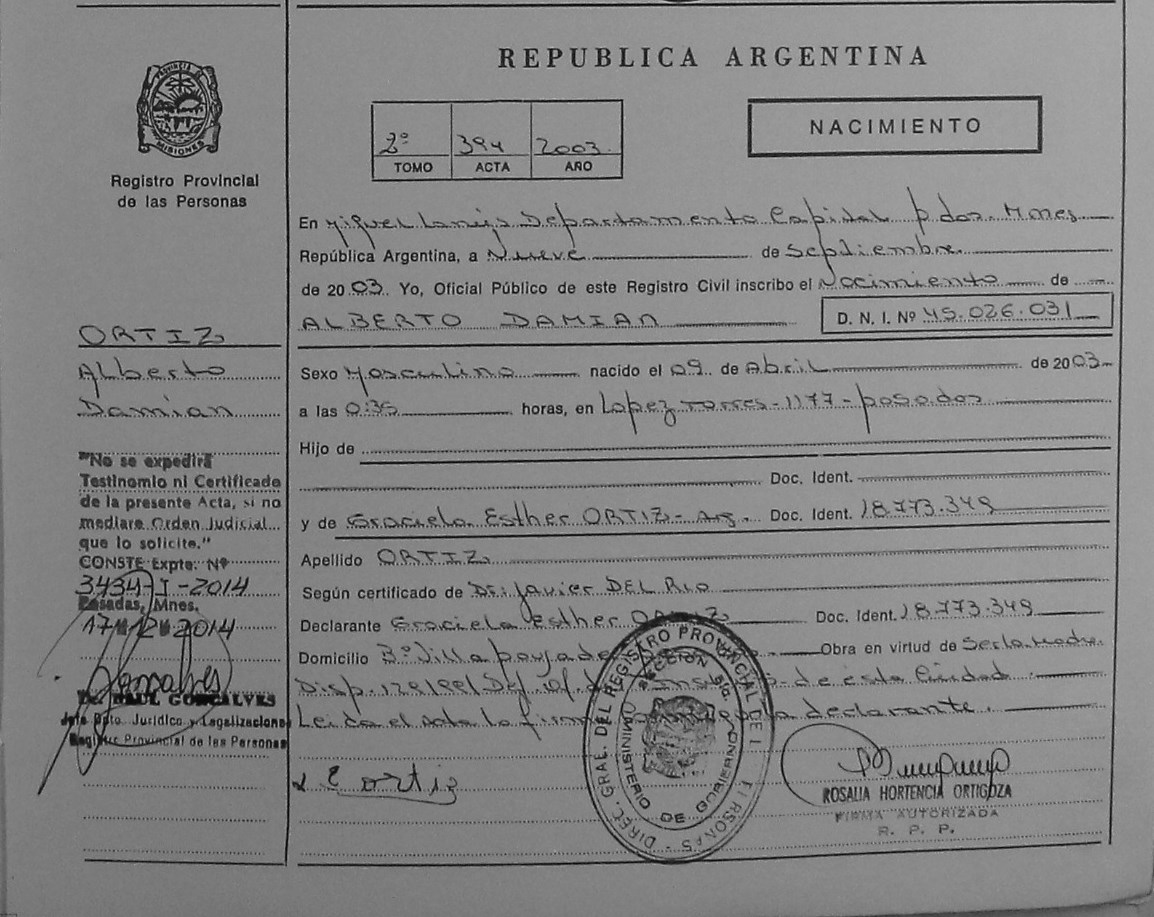 REPUBLICA ARGENTINA
PROVINCIA DE
MISIONES
Registro Provincial
de las Personas
2º 394 2003
TOMO ACTA AÑO
NACIMIENTO
En Miguel Lanús Departamento Capital p dos. Mnes
República Argentina, a Nueve de Septiembre
de 2003 Yo, Oficial Público de este Registro Civil inscribo el Nacimiento de
ALBERTO DAMIAN D. N. I. Nº 45.026.031
Sexo Masculino nacido el 09 de Abril de 2003
a las 0:35 horas, en Lopez Torres - 1177 - posadas
Hijo de
Doc. Ident.
y de Graciela Esther ORTIZ - Arg. Doc. Ident. 18.773.349
Apellido ORTIZ
Según certificado de Dr. Javier DEL RIO
Declarante Graciela Esther ORTIZ Doc. Ident. 18.773.349
Domicilio Bº Villa Obra en virtud de
Disp. de esta Ciudad
Leida el Acta la declarante.
ORTIZ
Alberto
Damian
"No se expedirá
Testimonio ni Certificado
de la presente Acta, si no
mediare Orden Judicial
que lo solicite."
CONSTE Expte. Nº
3434-I-2014
Posadas, Mnes.
17 12 2014
Dr. RAUL GONCALVES
Jefe Dpto. Jurídico y Legalizaciones
Registro Provincial de las Personas
E Ortiz
DIREC. GRAL. DEL REGISTRO PROVINCIAL DE PERSONAS
MINISTERIO DE GOBIERNO
ROSALIA HORTENCIA ORTIGOZA
FIRMA AUTORIZADA
R. P. P.